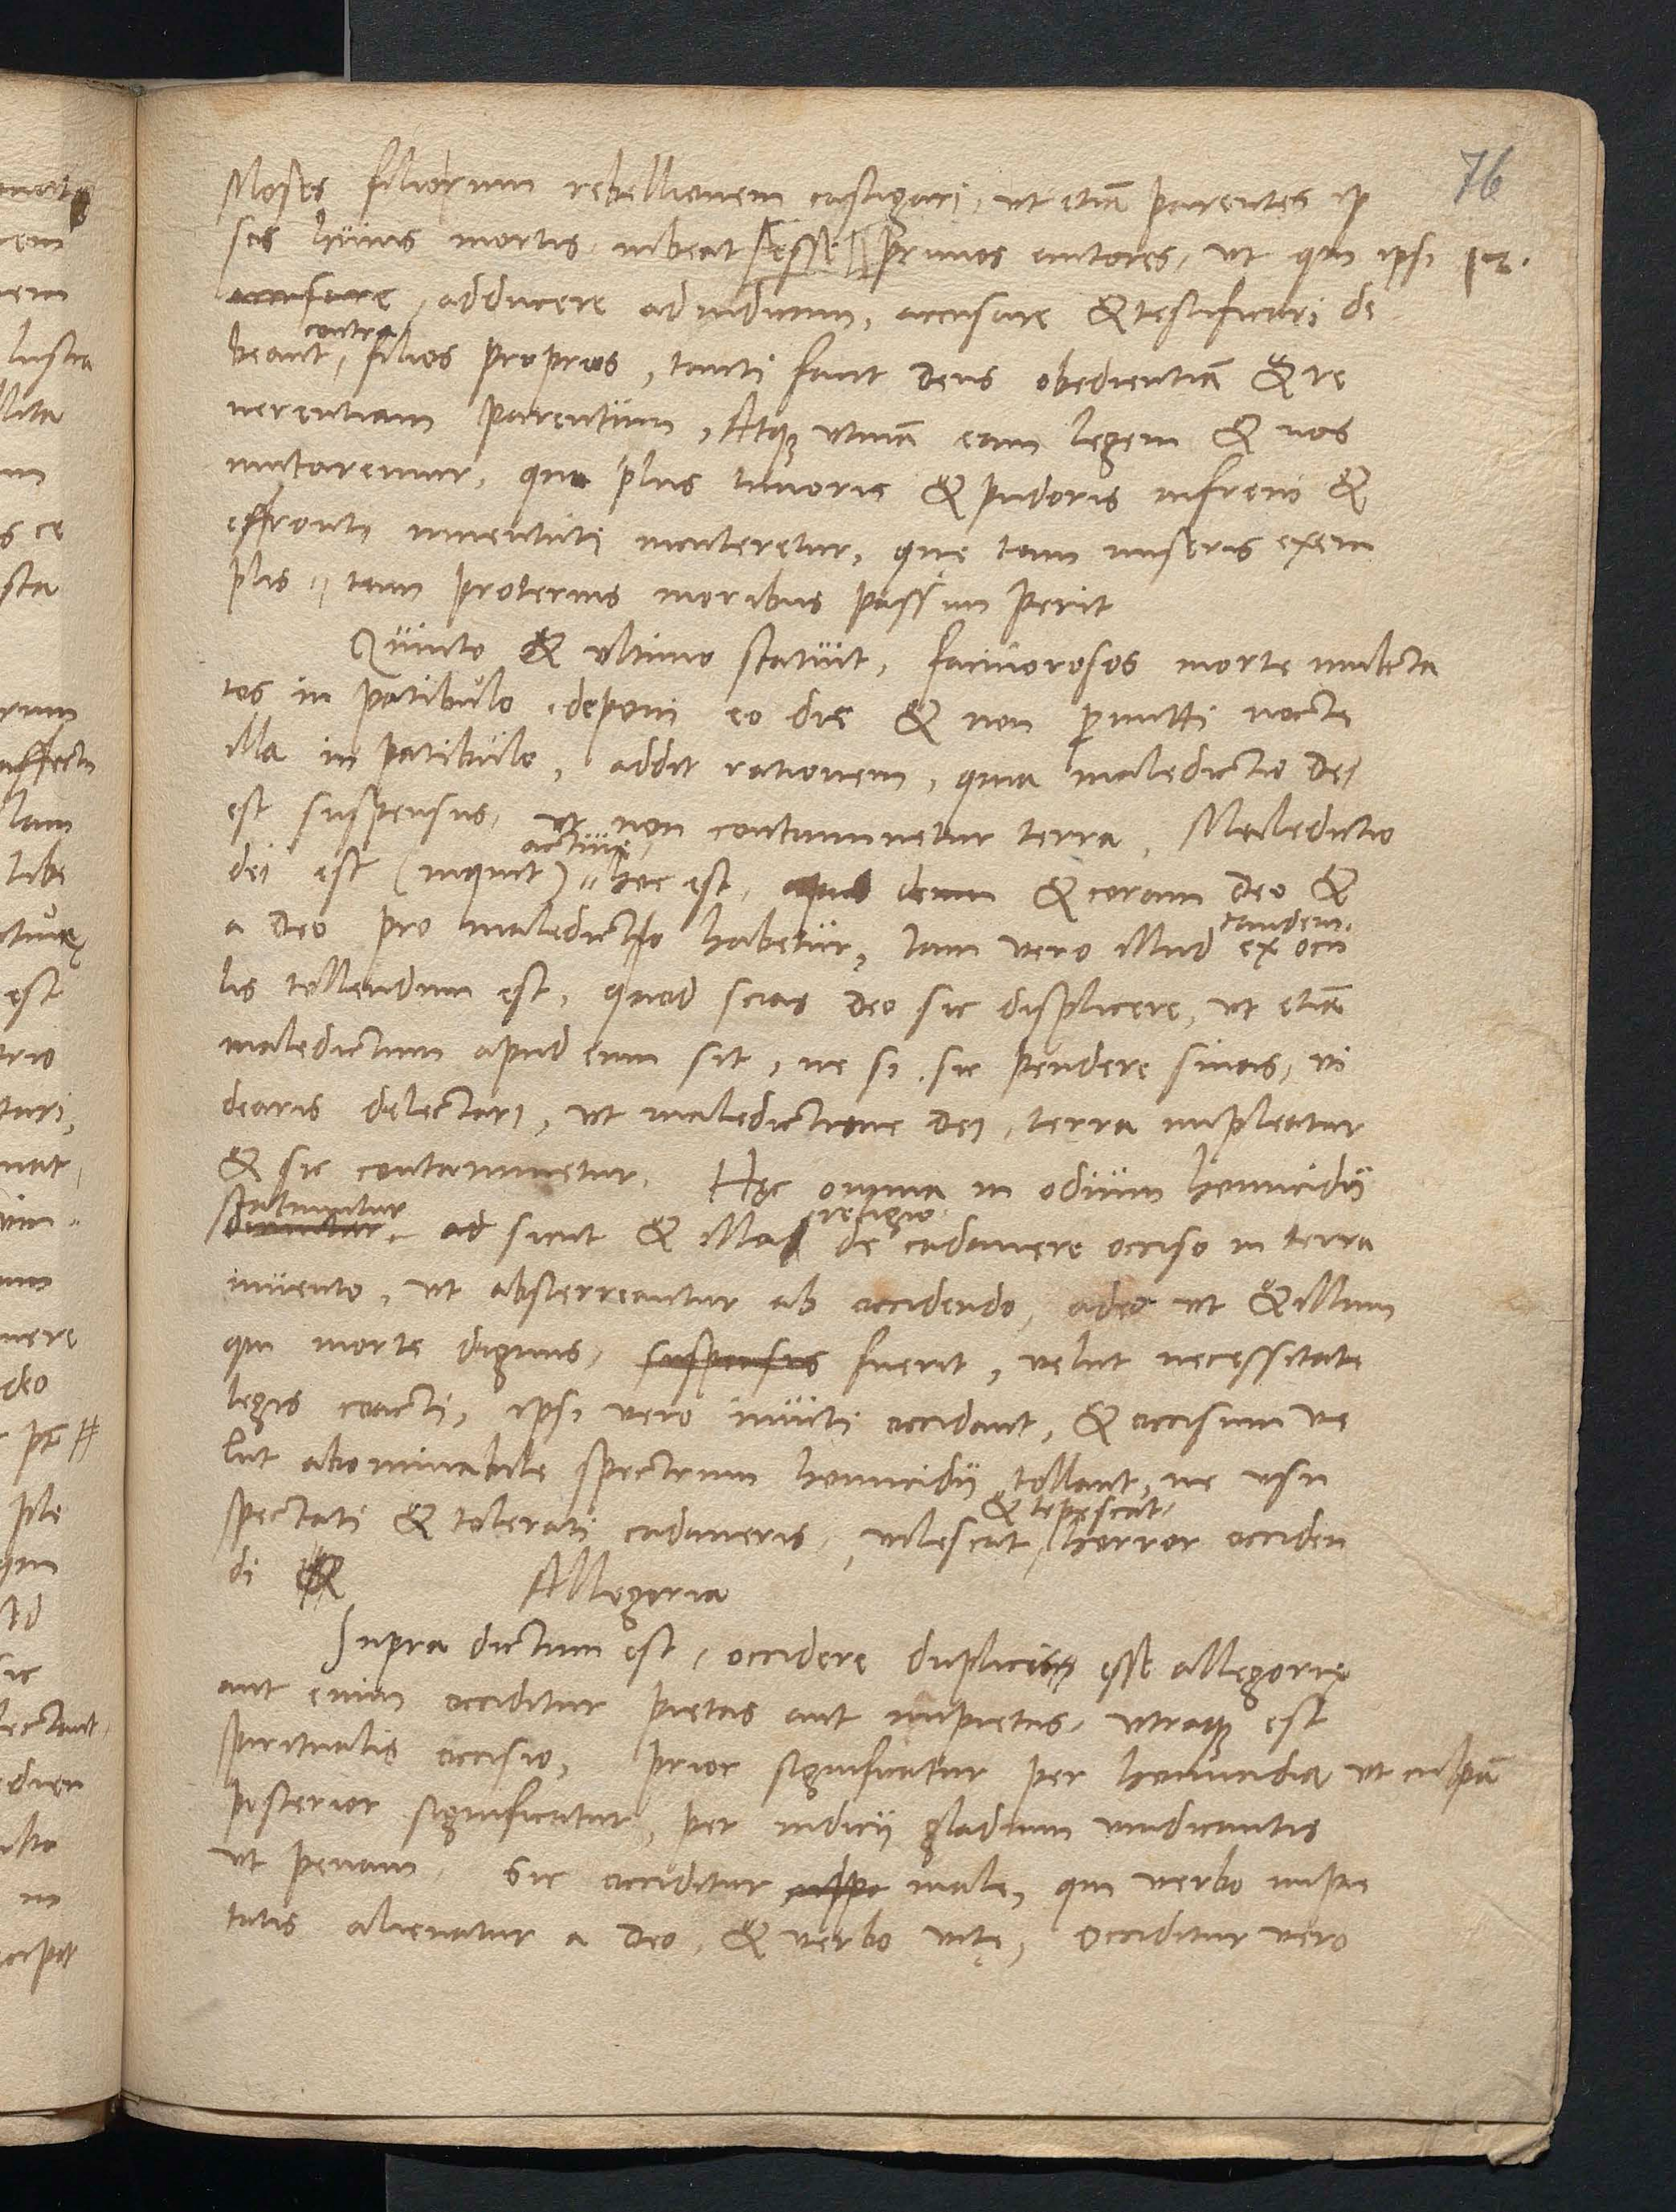 76
Moses filiorum rebellionem castigari, ut etiã parentes ip
sos huius mortis iubeat esse primos autores, ut qui ipsi
accusare, adducere ad iudicium, accusare & testificari de
contra
beant, filios proprios, tanti facit Deus obedientiã & re
uerentiam parentum, Atqz vtinã eam legem & nos
imitaremur, quo plus timoris & pudoris infreni &
effronti iuuentuti incuteretur, que tam miseris exem
plis, tam proteruis moribus passim perit
Quinto & vltimo statuit, facinorosos morte mulcta
tos in patibulo, deponi eo die & non pmitti nocte
illa in patibulo, addit rationem, quia maledictio Dei
est suspensus, ut non contaminetur terra, Maledictio
dei est (inquit) hoc est, apud deum & coram Deo &
a Deo pro maledicto habetur, Iam vero illud ex ocu
tandem
lis tollendum est, quod scias Deo sic displicere, ut etiã
maledictum apud eum sit, ne si sic pendere sinas, vi
dearis delectari, ut maledictione Dei, terra impleatur
& sic contaminetur. Hęc omnia in odium homicidii
statuuntur
ad sicut & illa de cadauere occiso in terra
religio
inuento, ut absterreantur ab occidendo, adeo ut & illum
qui morte dignus, suspensus fuerit, velut necessitate
legis coacti, ipsi vero inuiti occidant, & occisum ve
lut abominabile spectrum homicidii tollant, ne vsu
& tepescat
spectati & tolerati cadaueris, vilescat horror occiden
di
Allegoria
Supra dictum est, occidere duplicis esse allegorię
aut enim occiditur pietas aut impietas, vtraqz est
spiritualis occisio, prior significatur per homicidia ut culpã
posterior significatur, per iudicii gladium vindicantis
ut penam. Sic occiditur culpa male, qui verbo impie
tatis alienatur a Deo, & verbo vitę, Occiditur vero